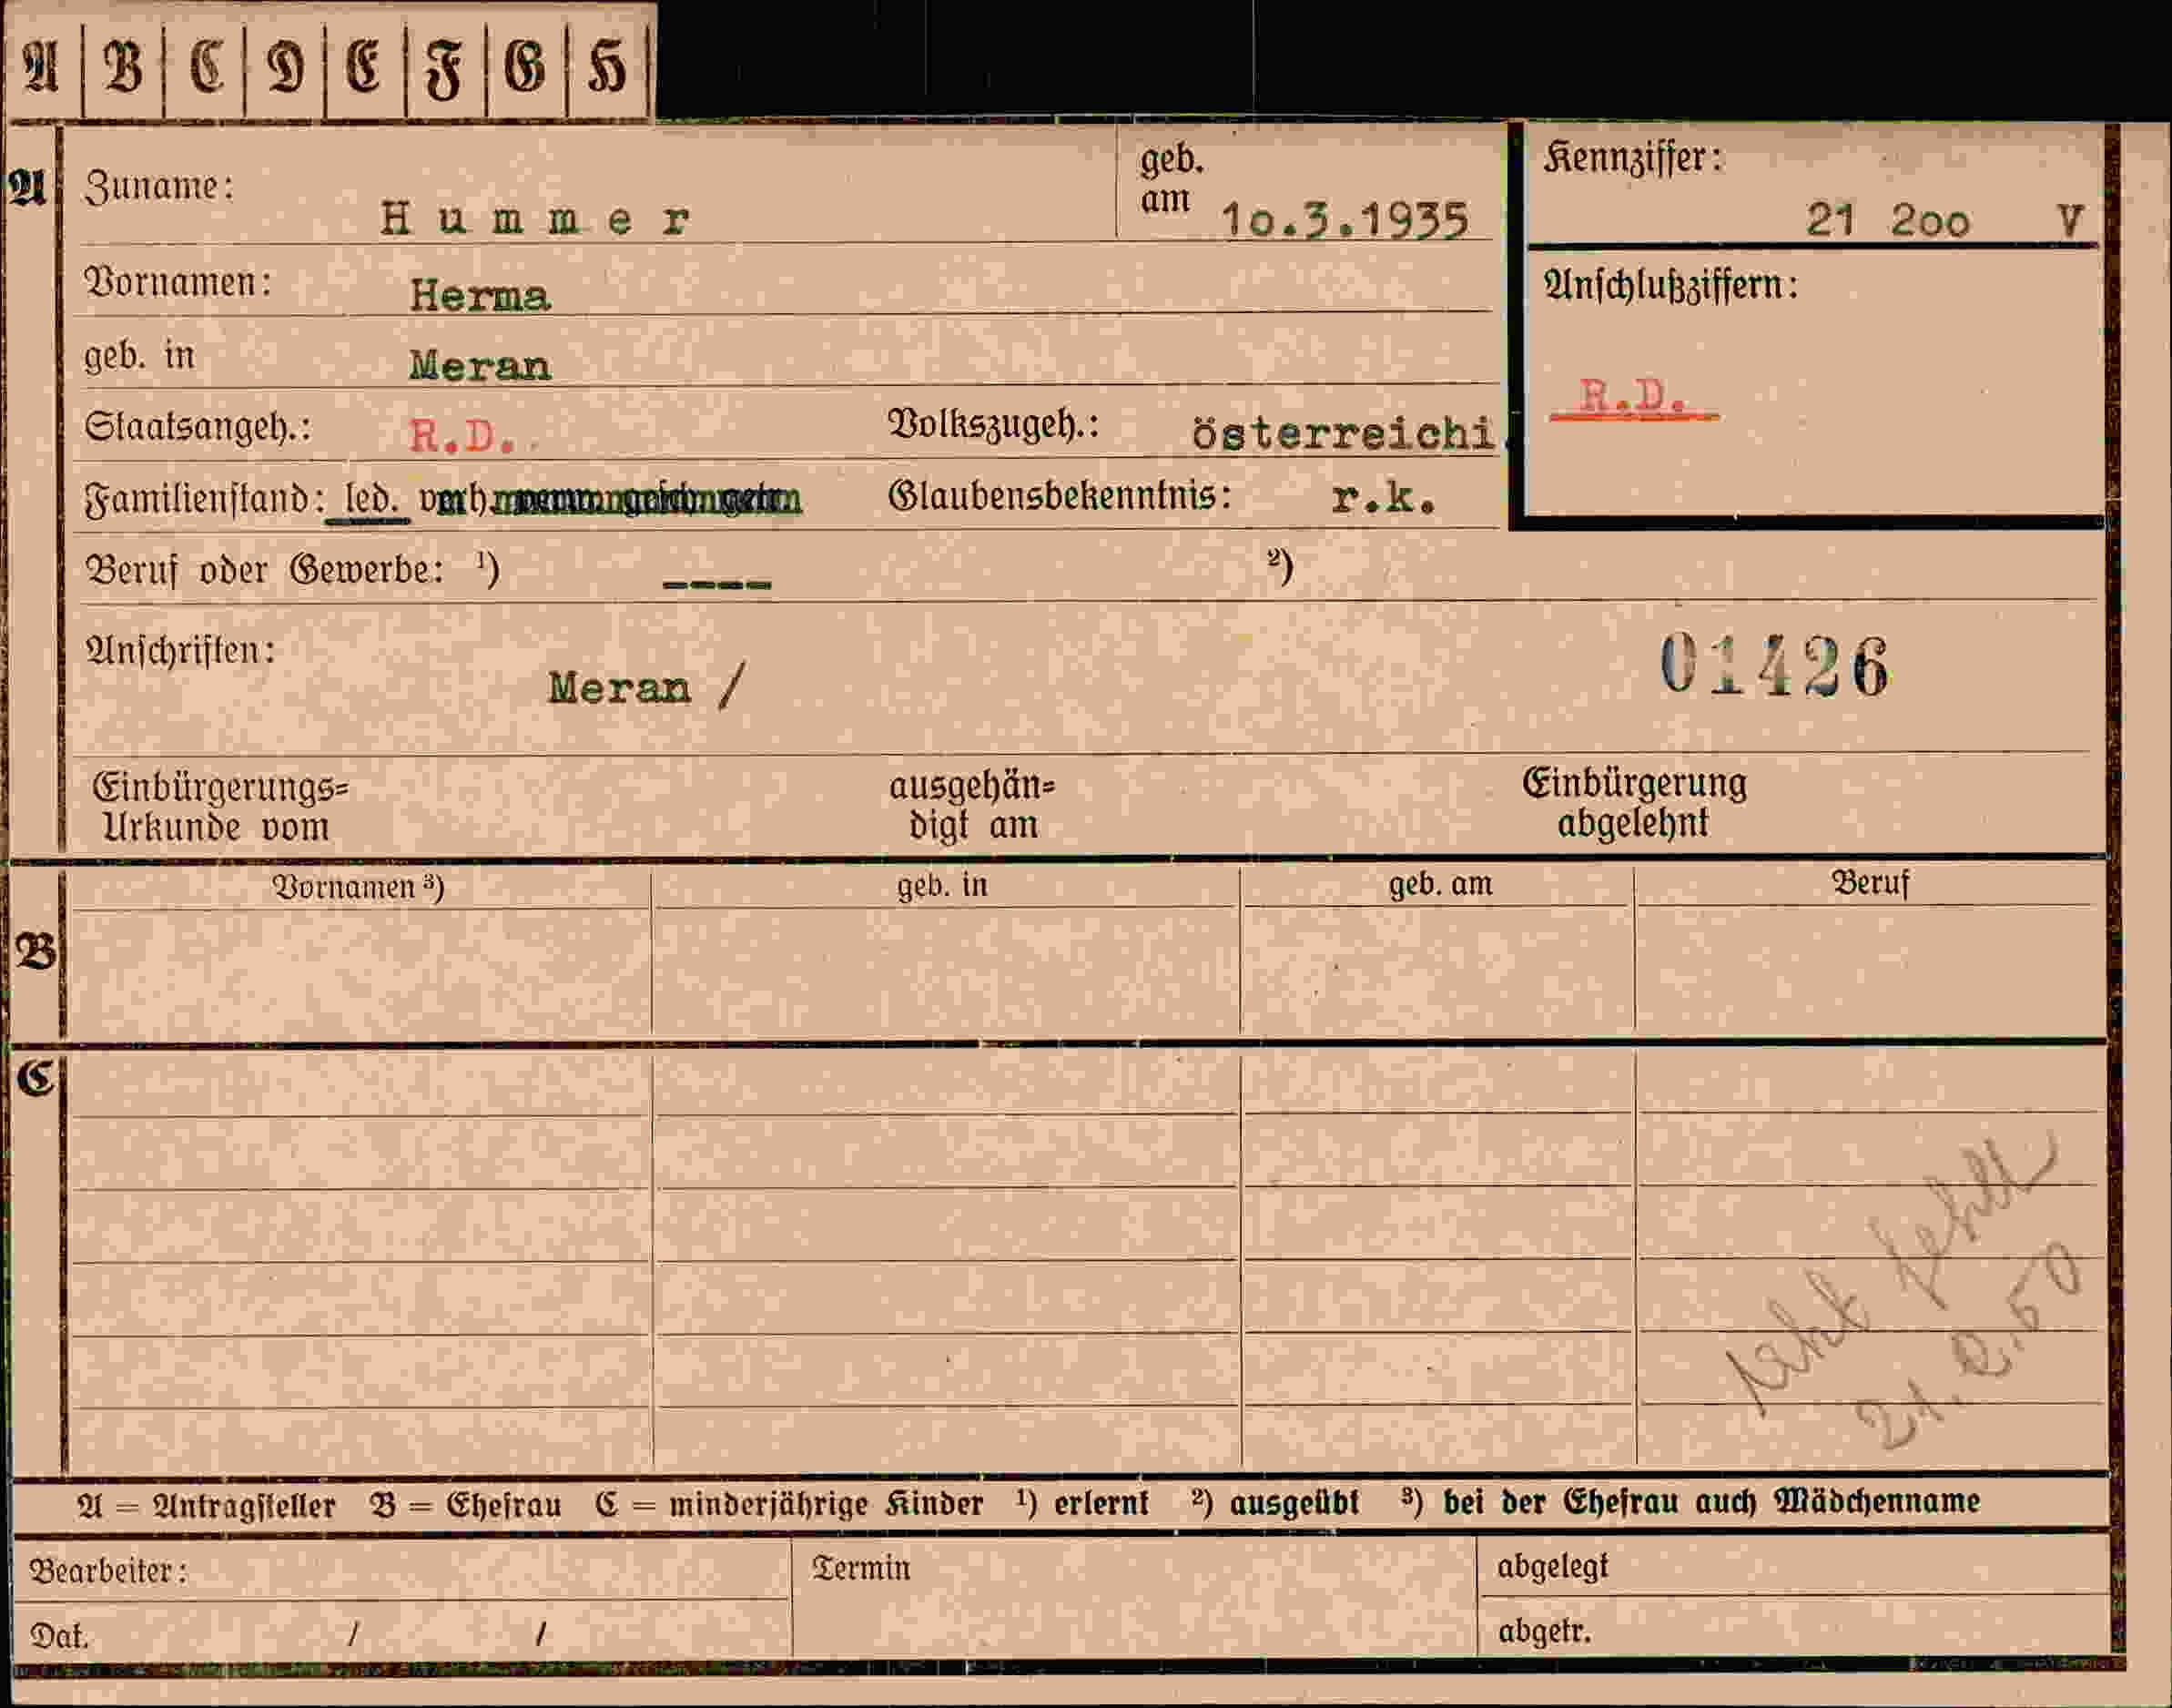 A B C D E F G H
A Zuname: Hummer geb. am 10.3.1935 Kennziffer: 21 200 V
Vornamen: Herma Anschlußziffern:
geb. in Meran
Staatsangeh.: R.D. Volkszugeh.: österreichi. R.D.
Familienstand: led. verh. Glaubensbekenntnis: r.k.
Beruf oder Gewerbe: ¹) ---- ²)
Anschriften: Meran / 01426
Einbürgerungs= ausgehän= Einbürgerung
Urkunde vom digt am abgelehnt
B Vornamen ³) geb. in geb. am Beruf
C
fehlt
21.2.50
A = Antragsteller B = Ehefrau C = minderjährige Kinder ¹) erlernt ²) ausgeübt ³) bei der Ehefrau auch Mädchenname
Bearbeiter: Termin abgelegt
Dat. / / abgetr.